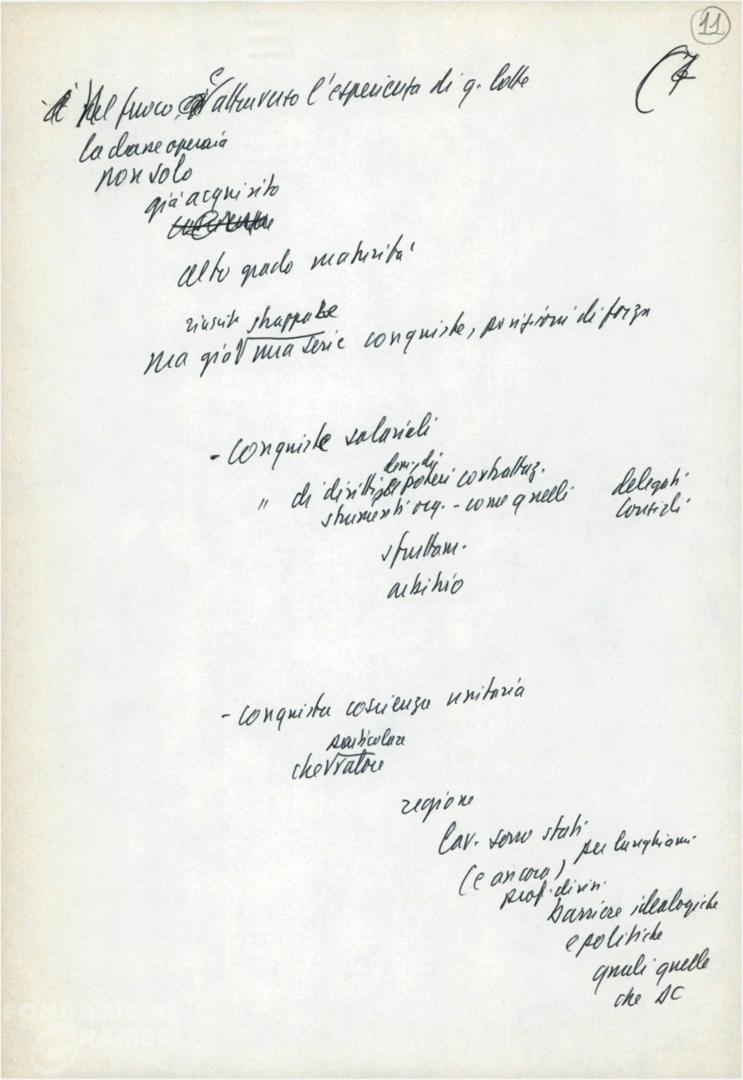 11
(7
Nel fuoco, e attraverso l'esperienza di q. lotte
la classe operaia
non solo
già acquisito
alto grado maturità
riuscita strappare
ma già una serie conquiste, posizioni di forza
- conquiste salariali
" di diritti, poteri contrattaz.
strumenti org. - come quelli delegati
Consigli
sfruttam.
arbitrio
- conquista coscienza unitaria
particolare
che valore
regione
lav. sono stati
(e ancora) per lunghi anni
prof. divisi
barriere ideologiche
e politiche
quali quelle
che DC
FONDAZIONE